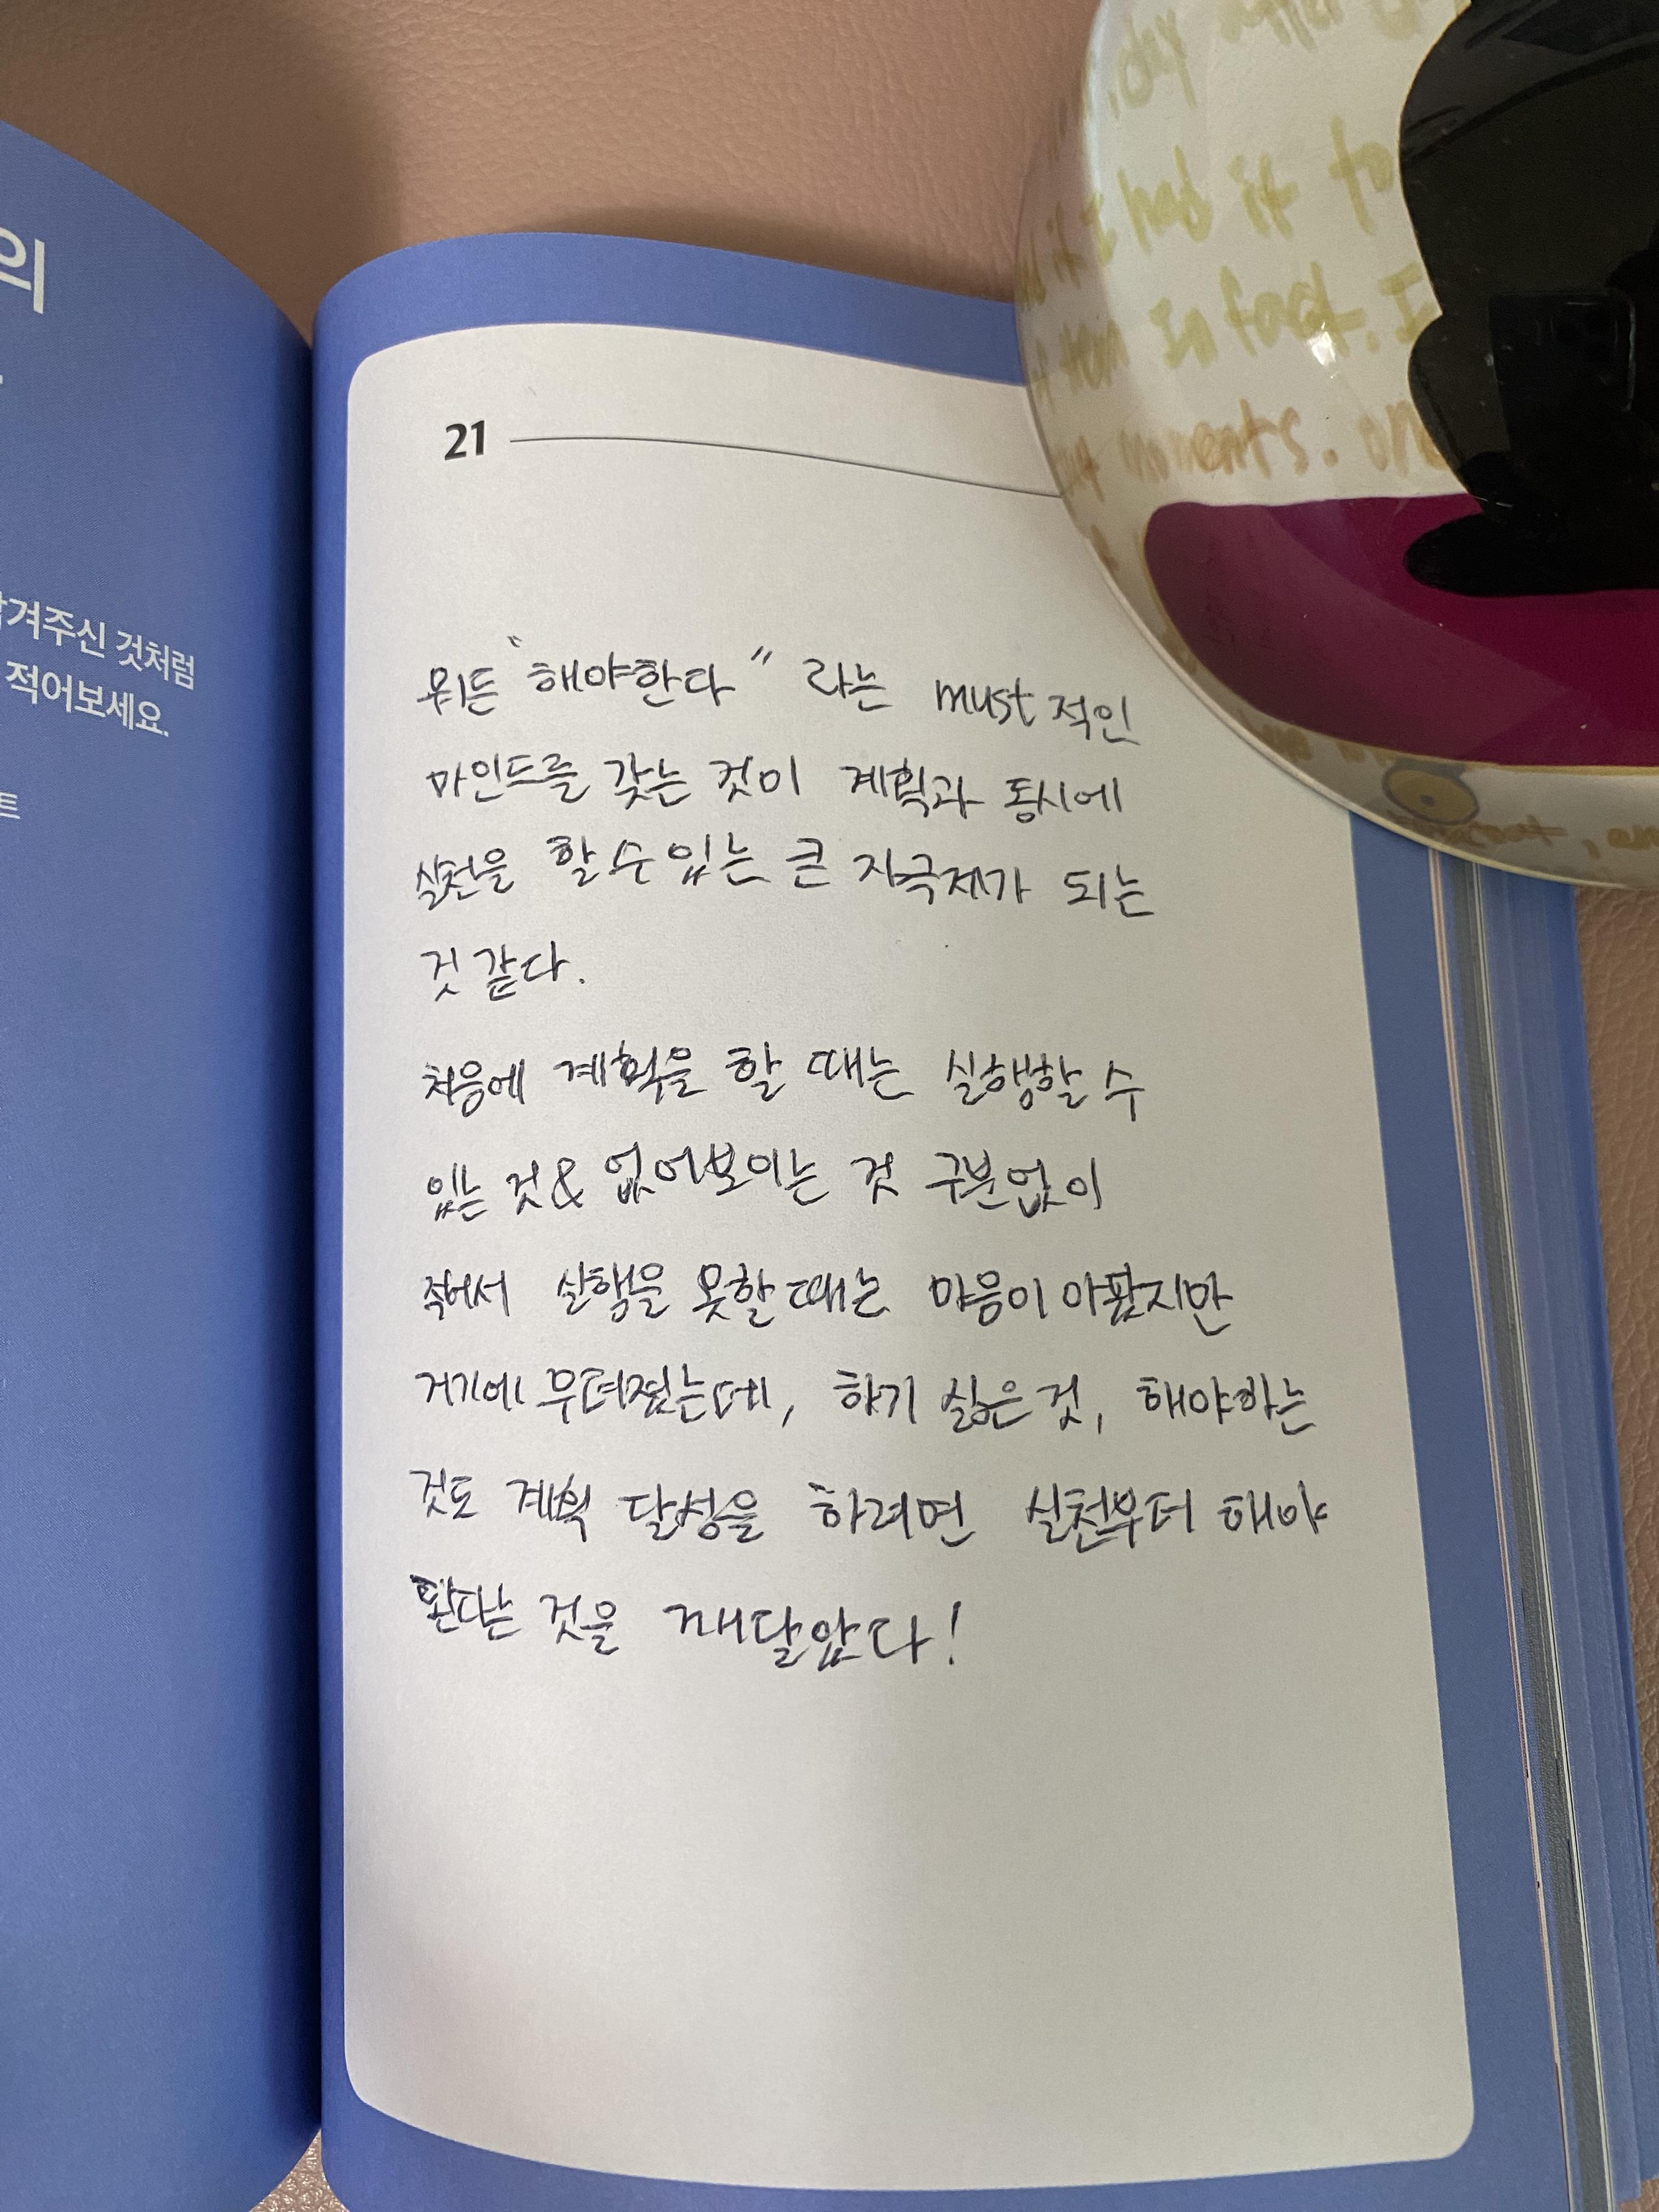 의
겨주신 것처럼
적어보세요.
트
21
뭐든 "해야한다" 라는 must적인
마인드를 갖는 것이 계획과 동시에
실천을 할 수 있는 큰 자극제가 되는
것 같다.
처음에 계획을 할 때는 실행할 수
있는 것 & 없어보이는 것 구분없이
적어서 실행을 못할 때는 마음이 아팠지만
거기에 무뎌졌는데, 하기 싫은 것, 해야하는
것도 계획 달성을 하려면 실천부터 해야
된다는 것을 깨달았다!
I had it to
In fact. I
moments. one